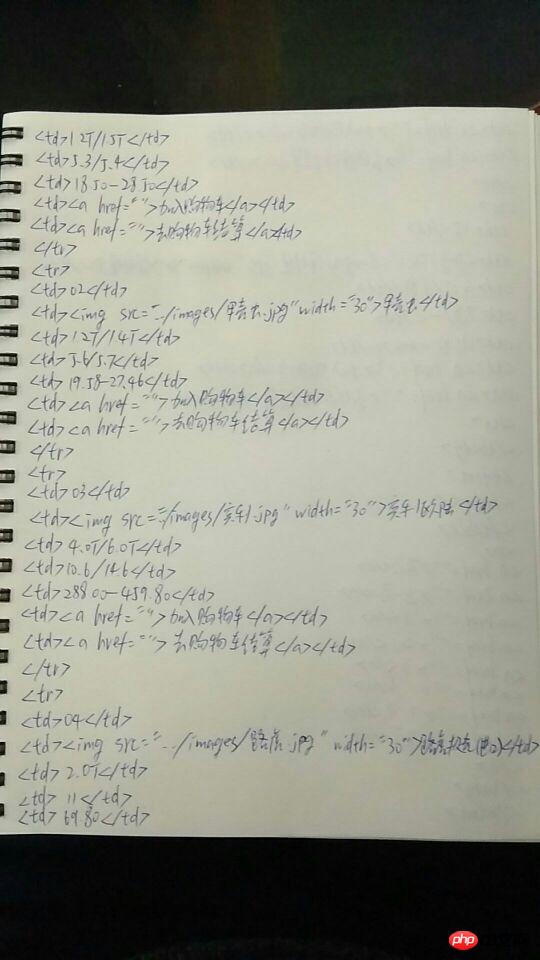 <td>1.2T/1.5T</td>
<td>5.3/5.4</td>
<td>18.50-28.50</td>
<td><a href="">加入购物车</a></td>
<td><a href="">去购物车结算</a></td>
</tr>
<tr>
<td>02</td>
<td><img src="../images/甲壳虫.jpg" width="30">甲壳虫</td>
<td>1.2T/1.4T</td>
<td>5.6/5.7</td>
<td>19.58-27.46</td>
<td><a href="">加入购物车</a></td>
<td><a href="">去购物车结算</a></td>
</tr>
<tr>
<td>03</td>
<td><img src="../images/ .jpg" width="30"> </td>
<td>4.0T/6.0T</td>
<td>10.6/14.6</td>
<td>288.00-459.80</td>
<td><a href="">加入购物车</a></td>
<td><a href="">去购物车结算</a></td>
</tr>
<tr>
<td>04</td>
<td><img src="../images/路虎.jpg" width="30">路虎 </td>
<td>2.0T</td>
<td>11</td>
<td>69.80</td>
php